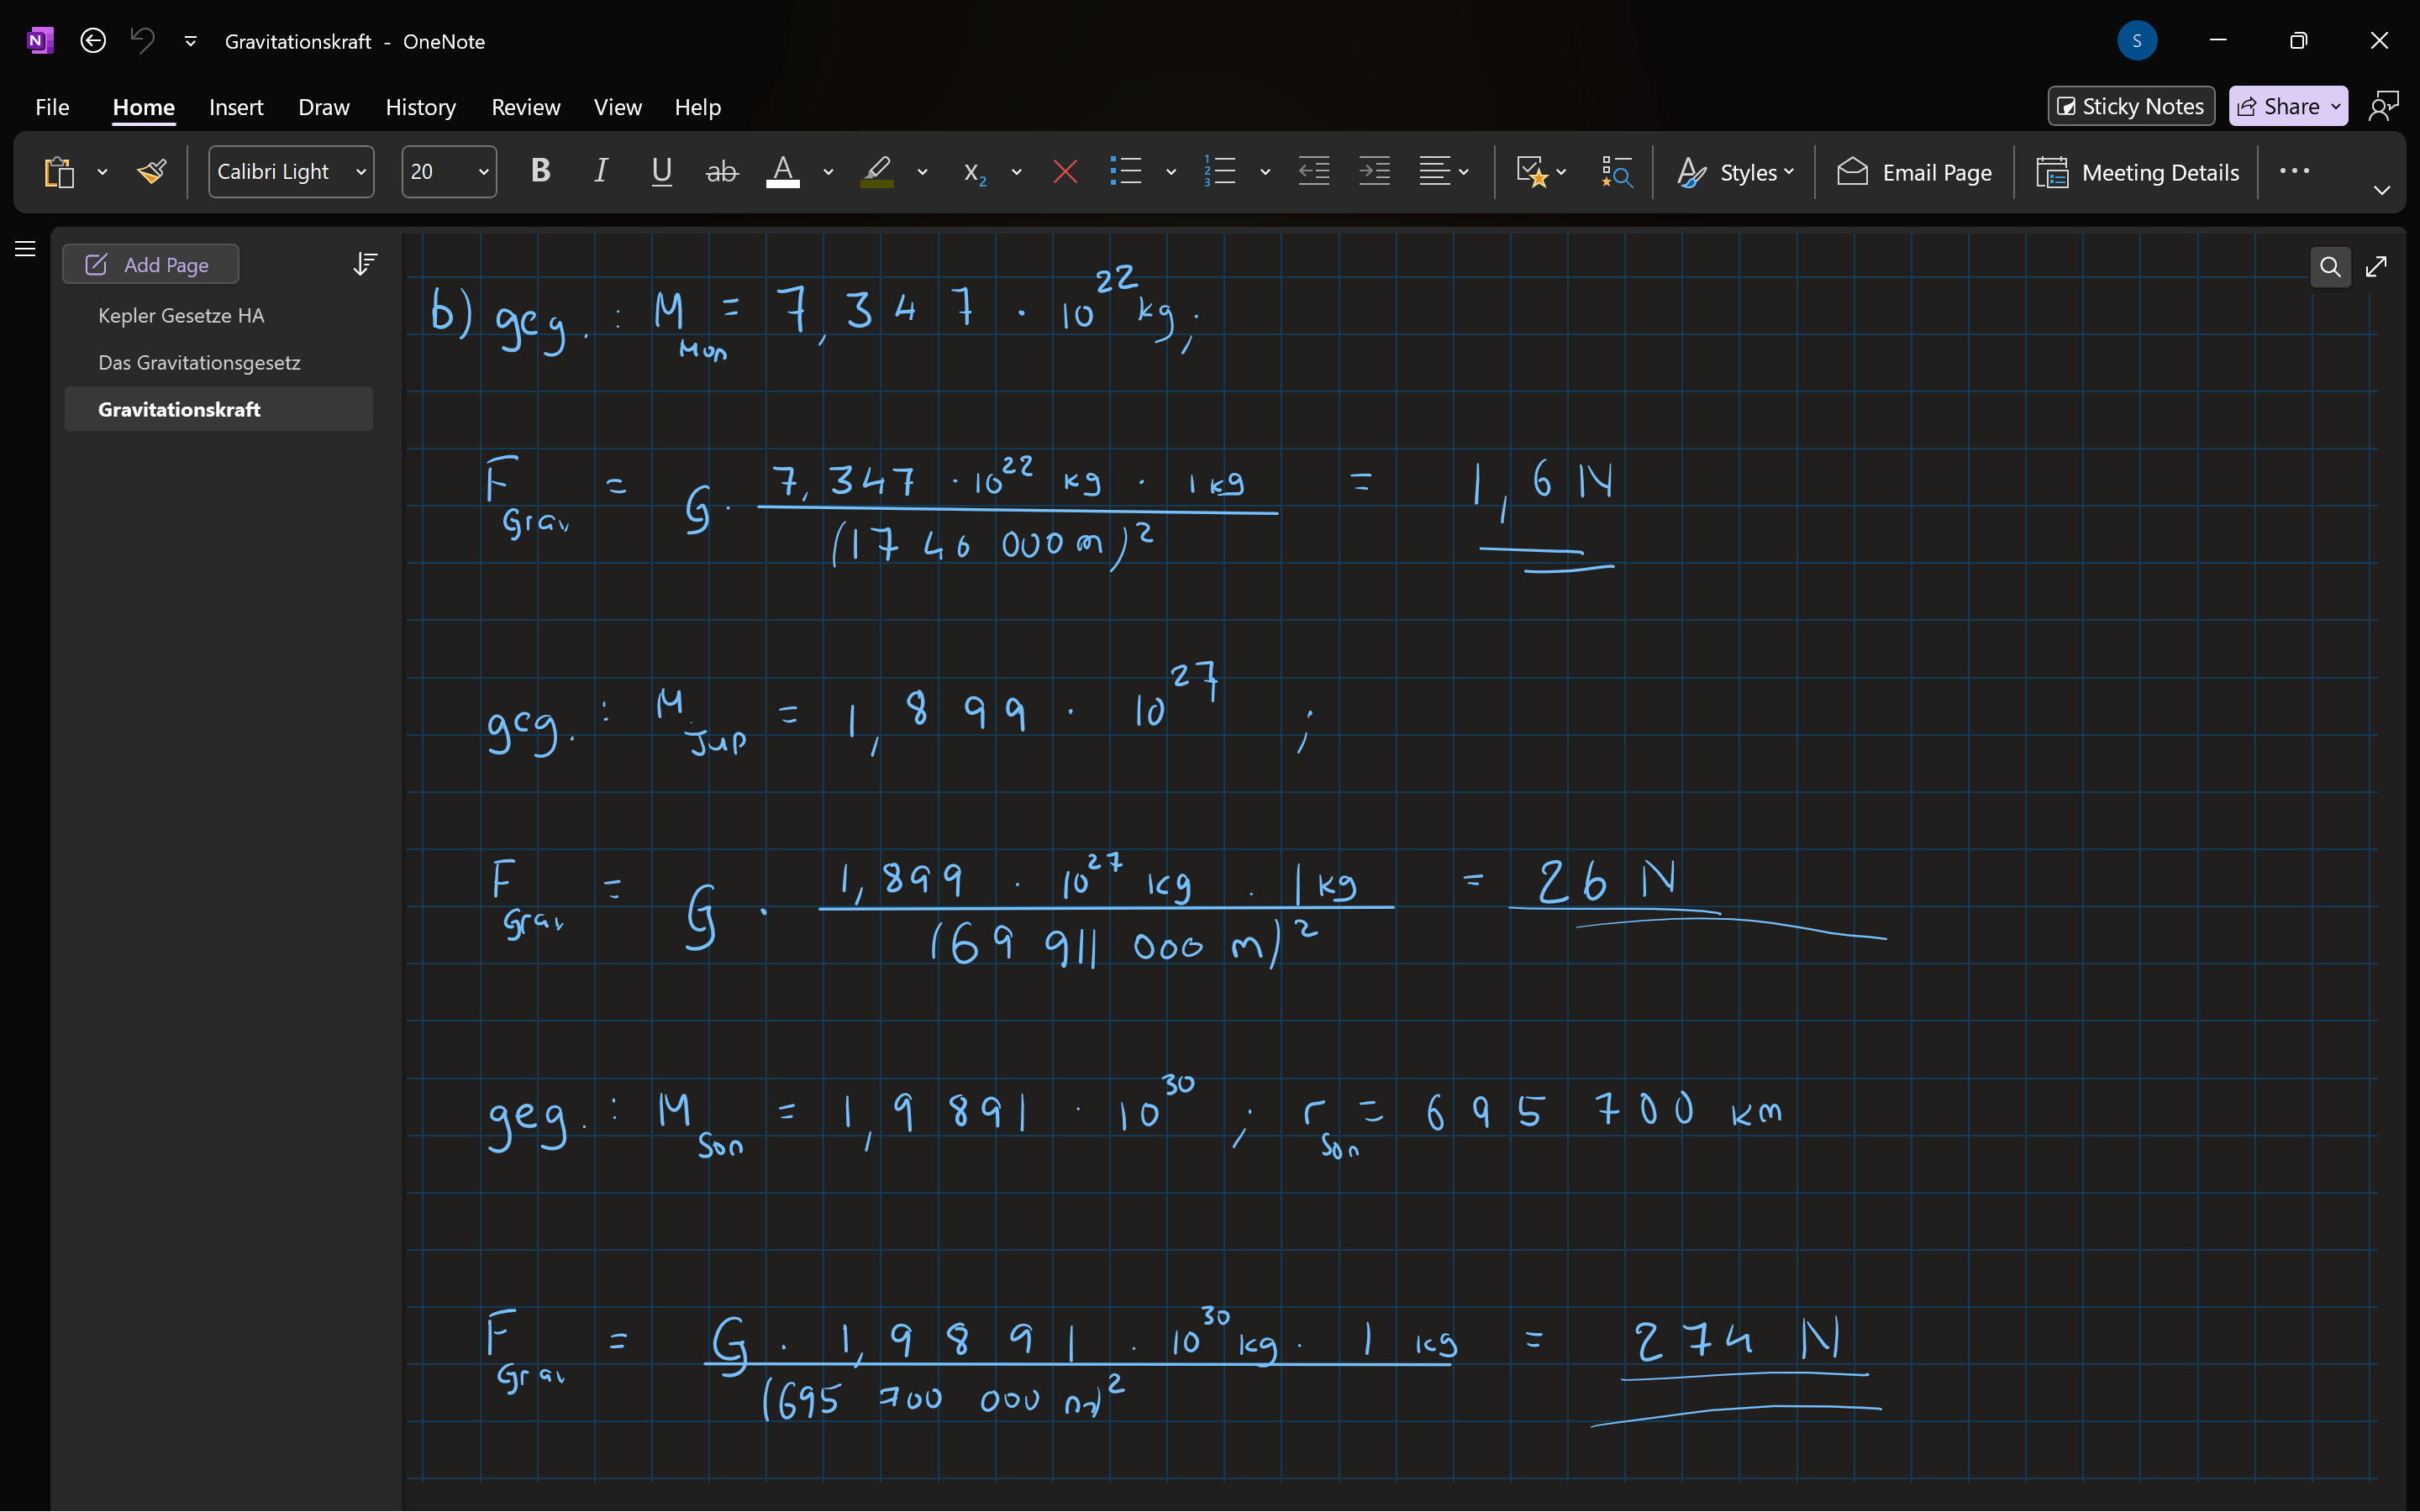 Gravitationskraft - OneNote
S
File Home Insert Draw History Review View Help
Sticky Notes Share
Calibri Light 20 B I U ab A x₂ Styles Email Page Meeting Details
Add Page
Kepler Gesetze HA
Das Gravitationsgesetz
Gravitationskraft
b) geg. : M_Mon = 7,347 · 10^22 kg;
F_Grav = G · (7,347 · 10^22 kg · 1 kg) / (1740 000 m)^2 = 1,6 N
geg. : M_Jup = 1,899 · 10^27 ;
F_Grav = G · (1,899 · 10^27 kg · 1 kg) / (69 911 000 m)^2 = 26 N
geg. : M_Son = 1,9891 · 10^30 ; r_Son = 695 700 km
F_Grav = (G · 1,9891 · 10^30 kg · 1 kg) / (695 700 000 m)^2 = 274 N